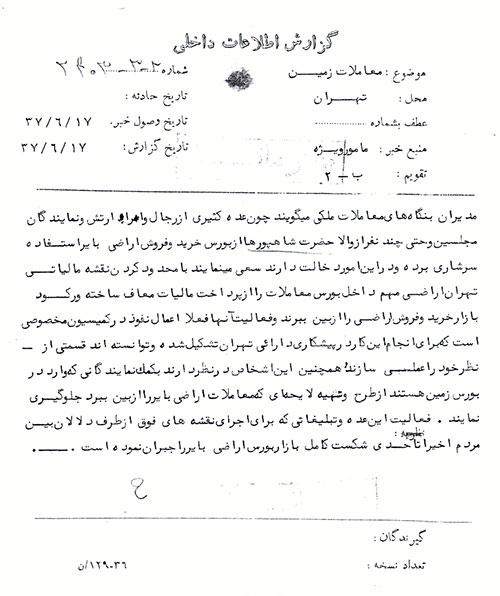 گزارش اطلاعات داخلی
موضوع : معاملات زمین
شماره
محل : تهران
تاریخ حادثه :
عطف بشماره ........
تاریخ وصول خبر: ۳۷/۶/۱۷
منبع خبر: مامور ویژه
تاریخ گزارش: ۳۷/۶/۱۷
تقویم : ب - ۲
مدیران بنگاه‌های معاملات ملکی میگویند چون عده کثیری از رجال و امراء ارتش و نمایندگان
مجلسین و حتی چند نفر از والا حضرت شاهپورها از بورس خرید و فروش اراضی بایر استفاده
سرشاری برده و در این امور دخالت دارند سعی مینمایند با محدود کردن نقشه مالیاتی
تهران اراضی مهم داخل بورس معاملات را از پرداخت مالیات معاف ساخته و رکود
بازار خرید و فروش اراضی را از بین ببرند و فعالیت آنها فعلا اعمال نفوذ در کمیسیون مخصوصی
است که برای انجام این کار در پیشکاری دارائی تهران تشکیل شده و توانسته اند قسمتی از
نظر خود را عملی سازند و همچنین این اشخاص در نظر دارند بکمک نمایندگانی که وارد در
بورس زمین هستند از طرح و تهیه لایحه‌ای که معاملات اراضی بایر را از بین ببرد جلوگیری
نمایند . فعالیت این عده و تبلیغاتی که برای اجرای نقشه های فوق از طرف دلالان بین
مردم اخیرا تا حدی شکست کامل بازار بورس اراضی بایر را جبران نموده است .
گیرندگان :
تعداد نسخه :
۱۲۹-۳۶/ن